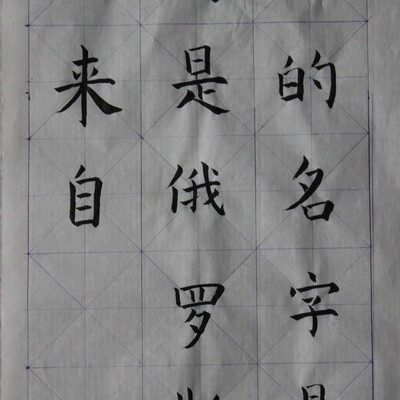 的名字
是俄罗
来自